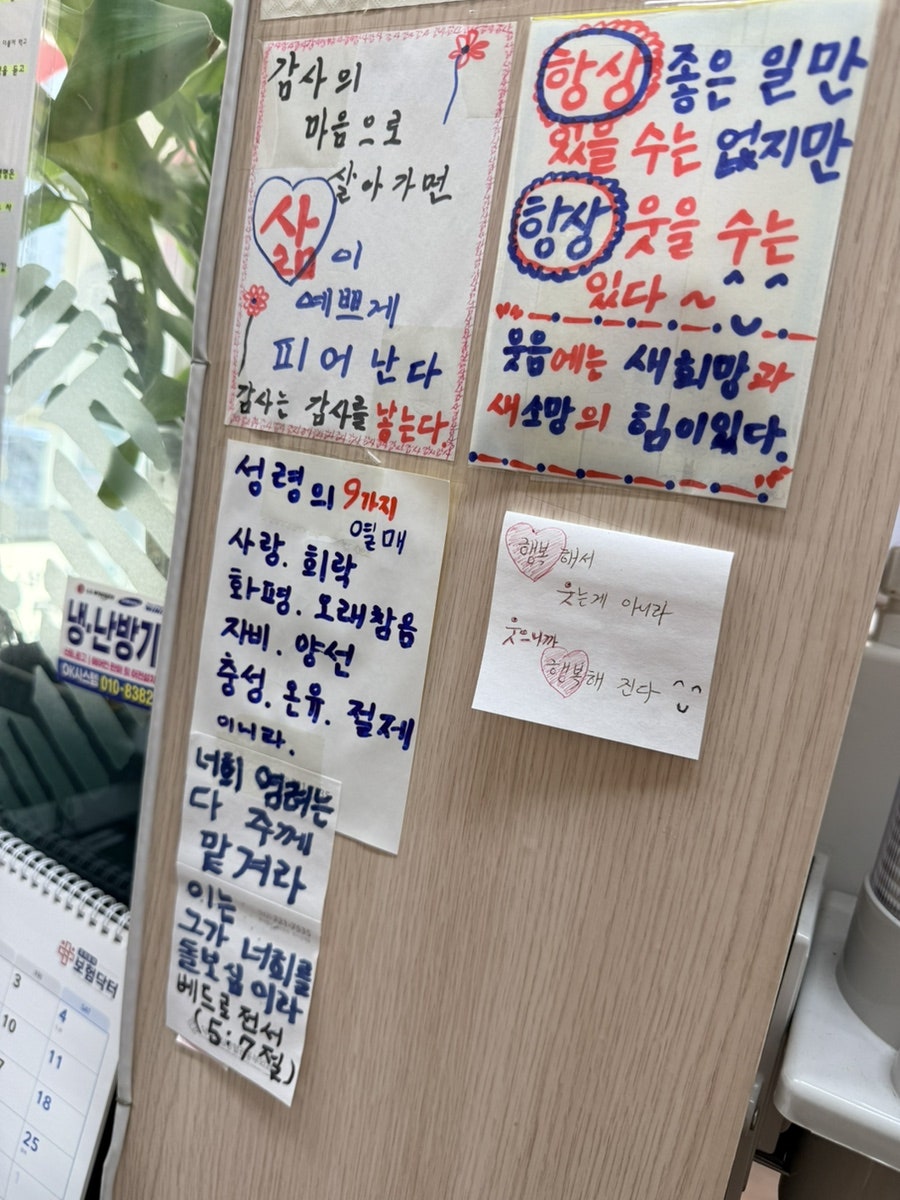 감사의
마음으로
살아가면
삶이
예쁘게
피어난다
감사는 감사를 낳는다.
항상 좋은 일만
있을 수는 없지만
항상 웃을 수는
있다~
웃음에는 새희망과
새소망의 힘이있다.
성령의 9가지
열매
사랑. 희락
화평. 오래참음
자비. 양선
충성. 온유. 절제
이니라.
너희 염려는
다 주께
맡겨라
이는
그가 너희를
돌보심이라
베드로전서
(5:7절)
행복해서
웃는게 아니라
웃으니까
행복해 진다
냉·난방기
OK시스템 010-8382
보험닥터
3
4
10
11
18
25